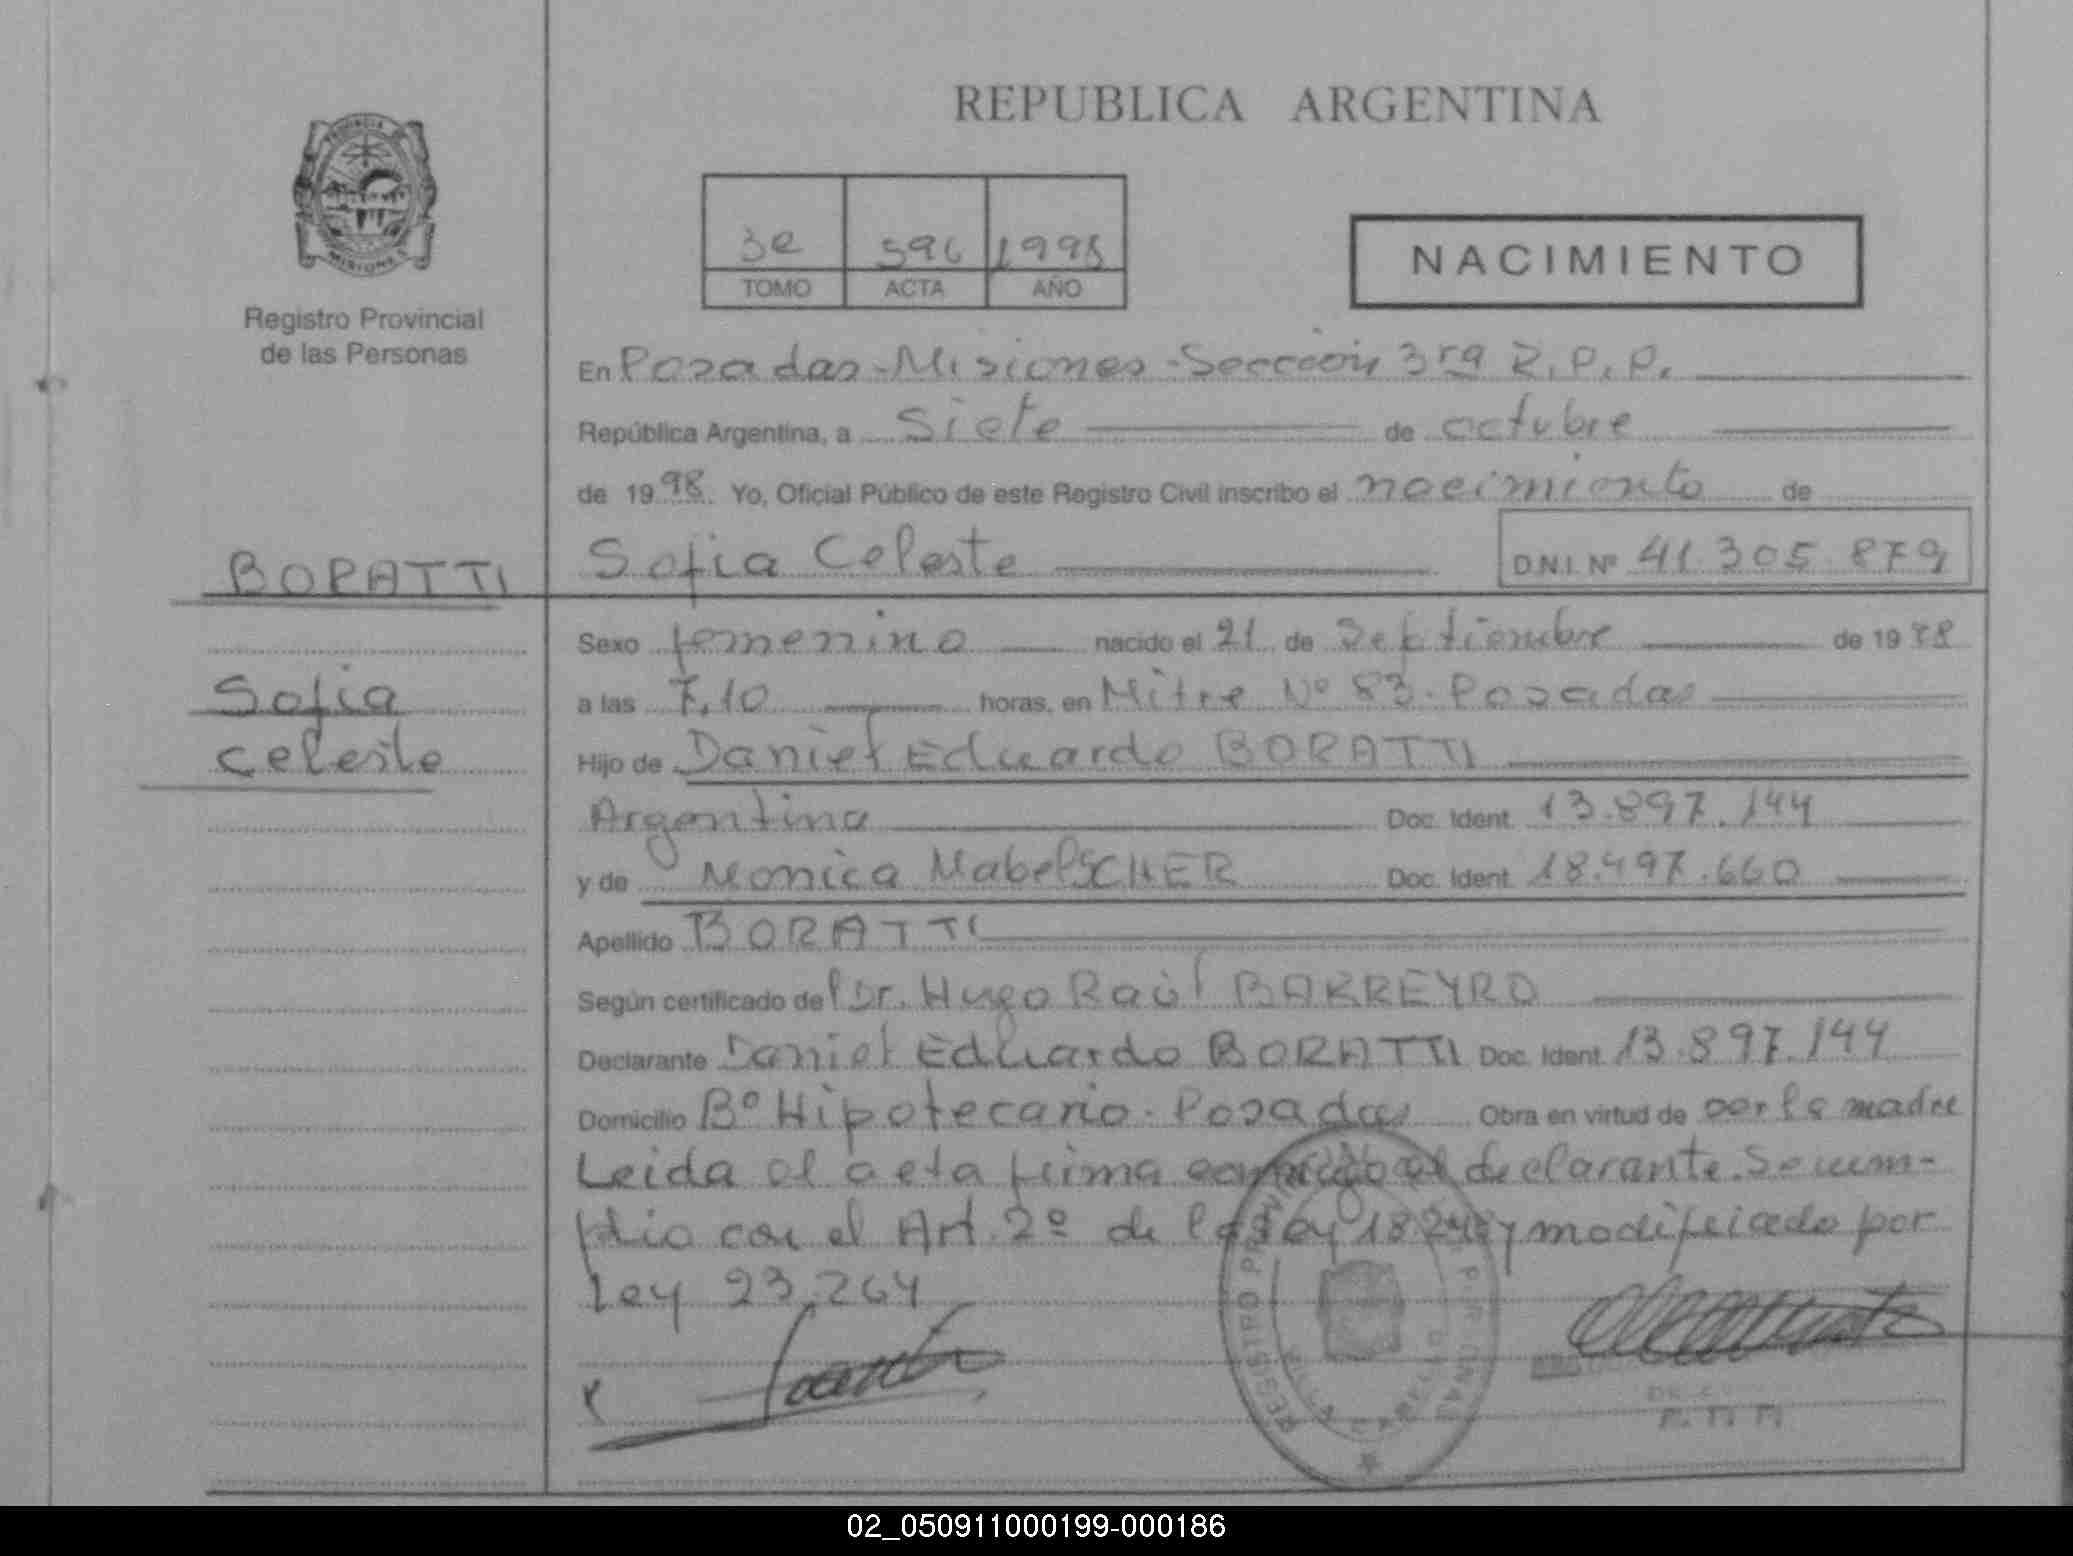 REPUBLICA ARGENTINA
PROVINCIA
MISIONES
Registro Provincial
de las Personas
3e 596 1998
TOMO ACTA AÑO
NACIMIENTO
En Posadas-Misiones-Sección 3ra R.P.P.
República Argentina, a Siete de octubre
de 1998. Yo, Oficial Público de este Registro Civil inscribo el nacimiento de
BORATTI
Sofia Celeste D.N.I. Nº 41.305.879
Sexo femenino nacido el 21 de Septiembre de 1998
Sofia
a las 7,10 horas, en Mitre Nº 83. Posadas
Celeste
Hijo de Daniel Eduardo BORATTI
Argentina Doc. Ident. 13.897.144
y de Monica Mabel SCHER Doc. Ident. 18.497.660
Apellido BORATTI
Según certificado del Dr. Hugo Raúl BARREYRO
Declarante Daniel Eduardo BORATTI Doc. Ident. 13.897.144
Domicilio Bº Hipotecario. Posadas Obra en virtud de por la madre
Leida el acta firma conmigo el declarante. Se cum-
plio con el Art. 2º de la Ley modificado por
Ley 23.264
REGISTRO
02_050911000199-000186